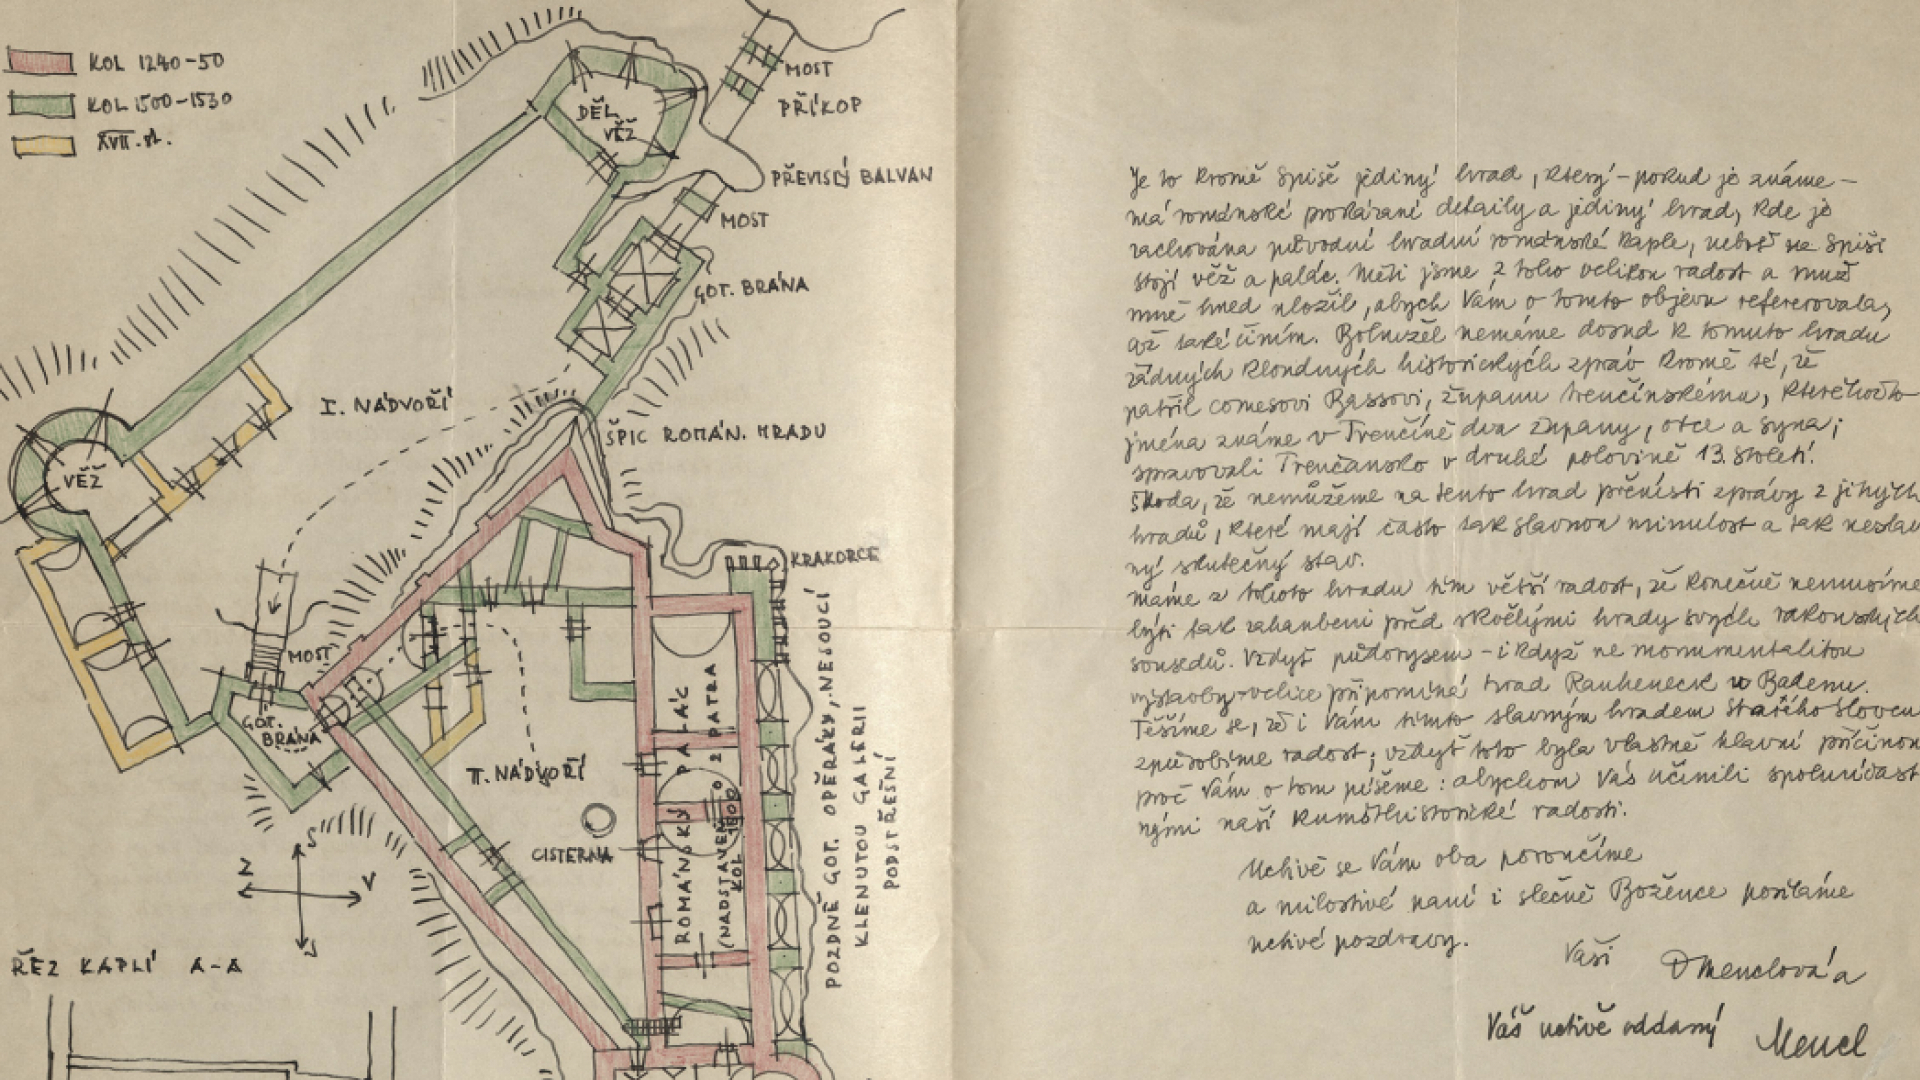 KOL 1240-50
KOL 1500-1530
XVII. st.
MOST
PŘÍKOP
DĚL.
VĚŽ
PŘEVISLÝ BALVAN
MOST
GOT. BRÁNA
I. NÁDVOŘÍ
ŠPIC ROMÁN. HRADU
VĚŽ
KRAKORCE
MOST
GOT.
BRÁNA
II. NÁDVOŘÍ
CISTERNA
ROMÁNSKÝ PALÁC
(NADSTAVEN O 2 PATRA
KOL 1500)
POZDNĚ GOT. OPĚRÁKY, NESOUCÍ
KLENUTOU GALERII
PODSTŘEŠNÍ
S
Z
V
J
ŘEZ KAPLÍ A-A
Je to kromě Spiše jediný hrad, který – pokud je známe –
má románské prokázané detaily a jediný hrad, kde je
zachována původní hradní románská kaple, neboť na Spiši
stojí věž a palác. Měli jsme z toho velikou radost a muž
mně hned uložil, abych Vám o tomto objevu referovala,
což také činím. Bohužel nemáme dosud k tomuto hradu
žádných kloudných historických zpráv kromě té, že
patřil comesovi Bassovi, županu trenčínskému, kteréhožto
jména známe v Trenčíně dva župany, otce a syna;
spravovali Trenčansko v druhé polovině 13. století.
Škoda, že nemůžeme na tento hrad přenésti zprávy z jiných
hradů, které mají často tak slavnou minulost a tak neslav
ný skutečný stav.
Máme z tohoto hradu tím větší radost, že konečně nemusíme
býti tak zahanbeni před skvělými hrady svých rakouských
sousedů. Vždyť půdorysem – i když ne monumentalitou
výstavby – velice připomíná hrad Rauheneck u Badenu.
Těšíme se, že i Vám tímto slavným hradem starého Sloven
způsobíme radost; vždyť toto byla vlastně hlavní příčinou
proč Vám o tom píšeme: abychom Vás učinili spoluúčast
nými naší kumsthistorické radosti.
Uctivě se Vám oba poroučíme
a milostivé paní i slečně Božence posíláme
uctivé pozdravy.
Vaši
DMenclová a
Váš uctivě oddaný
Mencl